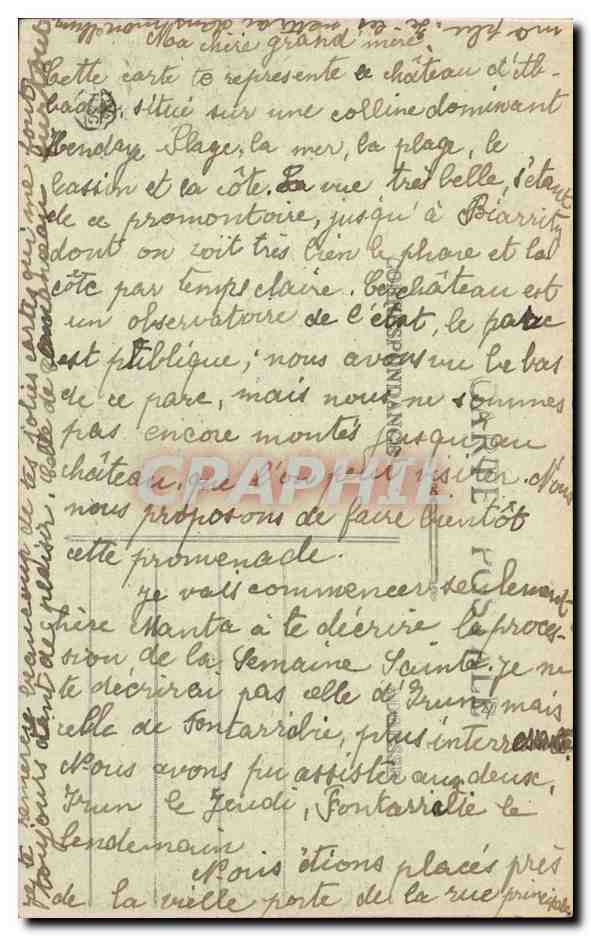 Ma chère grand' mère,
Cette carte te représente le château d'Ab-
badia, situé sur une colline dominant
Hendaye Plage, la mer, la plage, le
bassin et la côte. La vue très belle, s'étend
de ce promontoire, jusqu'à Biarritz
dont on voit très bien le phare et la
côte par temps claire. Ce château est
un observatoire de l'état, le parc
est publique; nous avons vu le bas
de ce parc, mais nous ne sommes
pas encore montés jusqu'au
château, que l'on peut visiter. Nous
nous proposons de faire bientôt
cette promenade.
Je vais commencer seulement
chère Manta à te décrire la proces-
sion, de la Semaine Sainte. Je ne
te décrirai pas celle d'Irun, mais
celle de Fontarrabie, plus interressante
Nous avons pu assister aux deux,
Irun le Jeudi, Fontarrabie le
lendemain
Nous étions placés près
de la vielle porte de la rue principale
Je te remercie beaucoup de tes jolies cartes qui me font
toujours tant de plaisir. Celle de
CARTE POSTALE
CORRESPONDANCE
ADRESSE
CRAPHIL